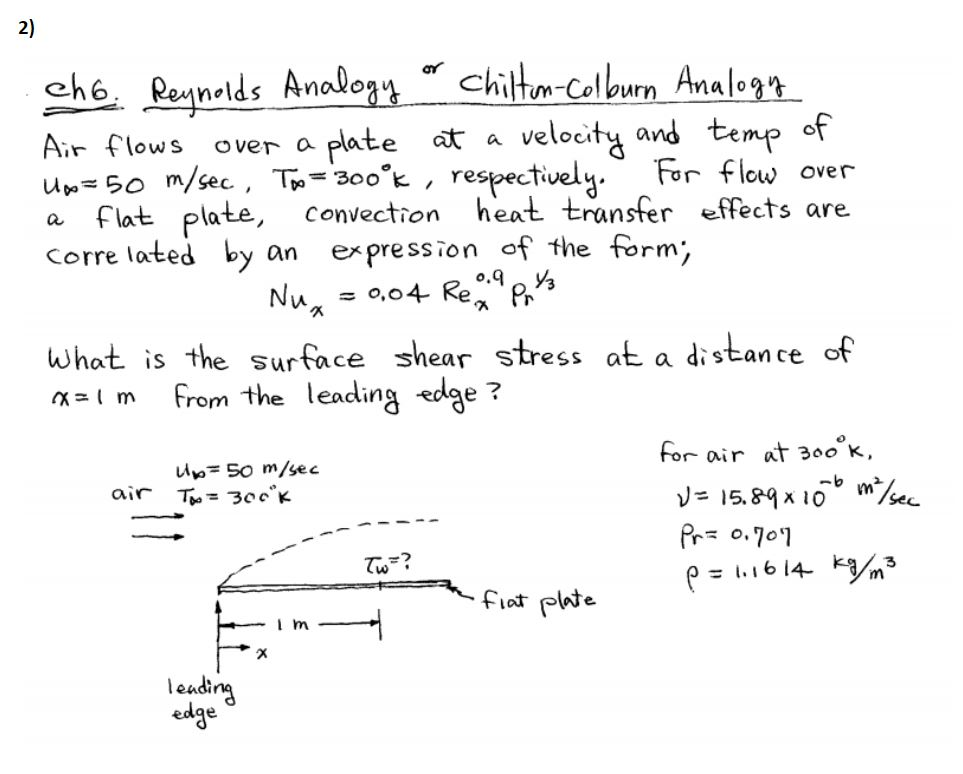 2)
ch6. Reynolds Analogy or Chilton-Colburn Analogy
Air flows over a plate at a velocity and temp of
U∞=50 m/sec, T∞=300°K, respectively. For flow over
a flat plate, convection heat transfer effects are
correlated by an expression of the form;
Nuₓ = 0.04 Reₓ^0.9 Pr^1/3
What is the surface shear stress at a distance of
x=1 m from the leading edge?
for air at 300°K,
ν= 15.89×10^-6 m²/sec
Pr= 0.707
ρ = 1.1614 kg/m³
U∞=50 m/sec
air T∞= 300°K
τw=?
flat plate
1 m
x
leading
edge